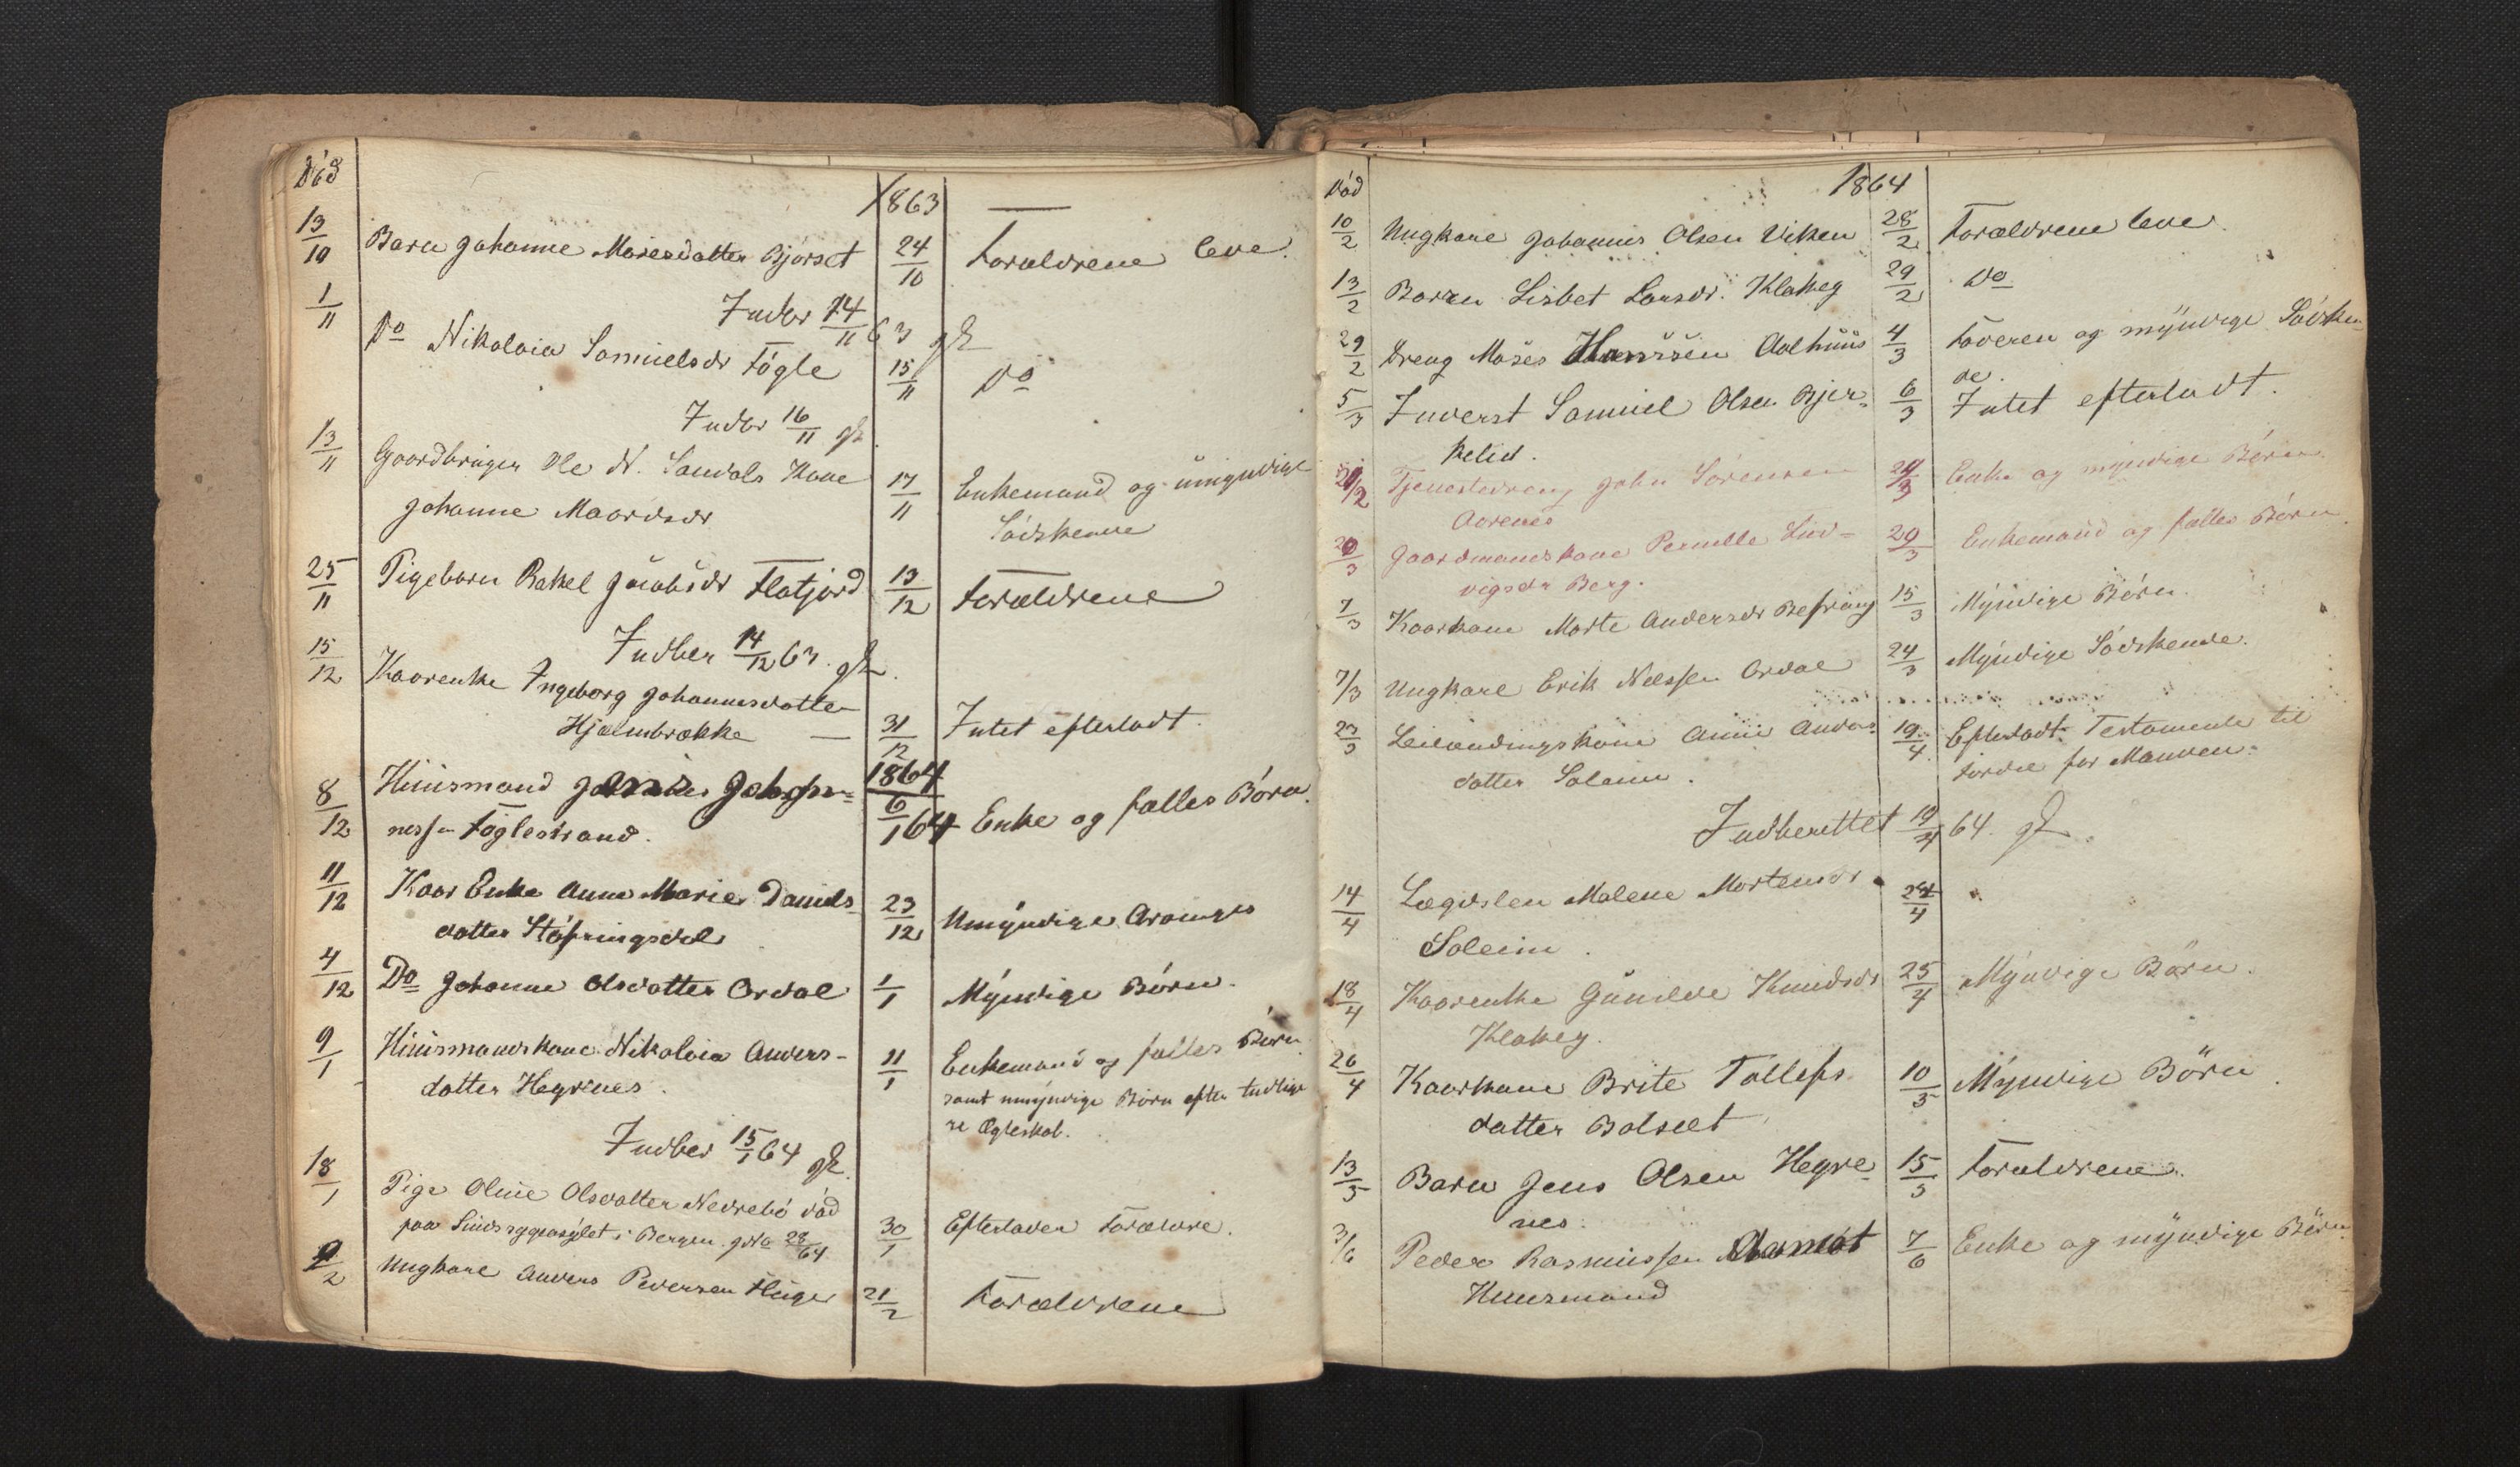 Død
1863 —
13/10 Barn Johanne Mosesdatter Bjørset 24/10 Forældrene leve.
Indbr 14/11 63
1/11 Do Nikolaia Samuelsdr Fögle 15/11 Do
Indbr 16/11
13/11 Gaardbruger Ole N. Sandals Kone 17/11 Enkemand og umyndige
Johanne Maardsdr Södskende
25/11 Pigebarn Rakel Jacobsdr Flatjord 13/12 Forældrene
Indber 14/12 63.
15/12 Kaarenke Ingeborg Johannesdatter
Hjelmbrække — 31/12 Intet efterladt.
1864
8/12 Huusmand Johan-
nessen Föglestrand. 6/1 64 Enke og fælles Börn.
11/12 Kaar Enke Anne Marie Daniels- 23/12 Umyndige Arvinger
datter Støfringsdal
4/12 Do Johanne Olsdatter Ordal 1/1 Myndige Börn.
9/1 Huusmandskone Nikolaia Anders- 11/1 Enkemand og fælles Börn
datter Hegrenes. samt umyndige Börn efter tidlige
re Ægteskab.
Indber 15/1 64
18/1 Pige Oline Olsdatter Nedrebö död
paa Sindssygeasylet i Bergen. 28/64 30/1 Efterlader Forældre.
2/2 Ungkarl Anders Pedersen Huge 21/2 Forældrene
Död 1864
10/2 Ungkarl Johannes Olsen Viken 28/2 Forældrene leve.
13/2 Barn Lisbet Larsdr. Klakeg 29/2 Do
29/2 Dreng Moses Hansen Aalhuus 4/3 Faderen og myndige Södsken
de.
5/3 Inderst Samuel Olsen Bjer- 6/3 Intet efterladt.
kelid.
21/2 Tjenestedreng John Sörensen 24/3 Enke og myndige Börn.
Aarenes
20/3 Gaardmandskone Pernille Lud- 29/3 Enkemand og fælles Börn.
vigsdr Berg.
7/3 Kaarkone Marte Andersdr Befring 15/3 Myndige Börn.
7/3 Ungkarl Erik Nielssen Ordal 24/3 Myndige Södskende.
23/3 Leilændingskone Anne Anders- 19/4 Efterladt Testamente til
datter Soleim. Fordel for Manden.
Indberettet 19/4 64.
14/4 Lægdslem Malene Mortensdr 24/4
Soleim.
18/4 Kaarenke Gunilde Knudsdr 25/4 Myndige Börn.
Klakeg.
26/4 Kaarkone Brite Tollefs 10/5 Myndige Börn
datter Bolsæt
13/5 Barn Jens Olsen Hegre- 15/5 Forældrene.
nes.
3/6 Peder Rasmussen Aamot 7/6 Enke og myndige Börn.
Huusmand